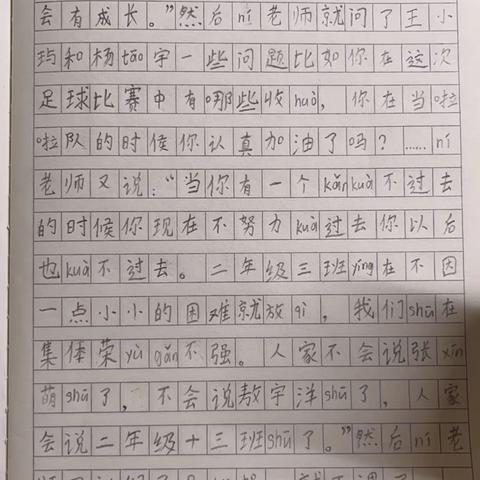 会有成长。”然后ní老师就问了王小
玙和杨tāo宇一些问题比如你在这次
足球比赛中有哪些收huò，你在当啦
啦队的时候你认真加油了吗？……ní
老师又说：“当你有一个kǎnkuà不过去
的时候你现在不努力kuà过去你以后
也kuà不过去。二年级三班yíng在不因
一点小小的困难就放qì，我们shū在
集体荣yù gǎn不强。人家不会说张xīn
萌shū了，不会说敖宇洋shū了，人家
会说二年级十三班shū了。”然后ní老